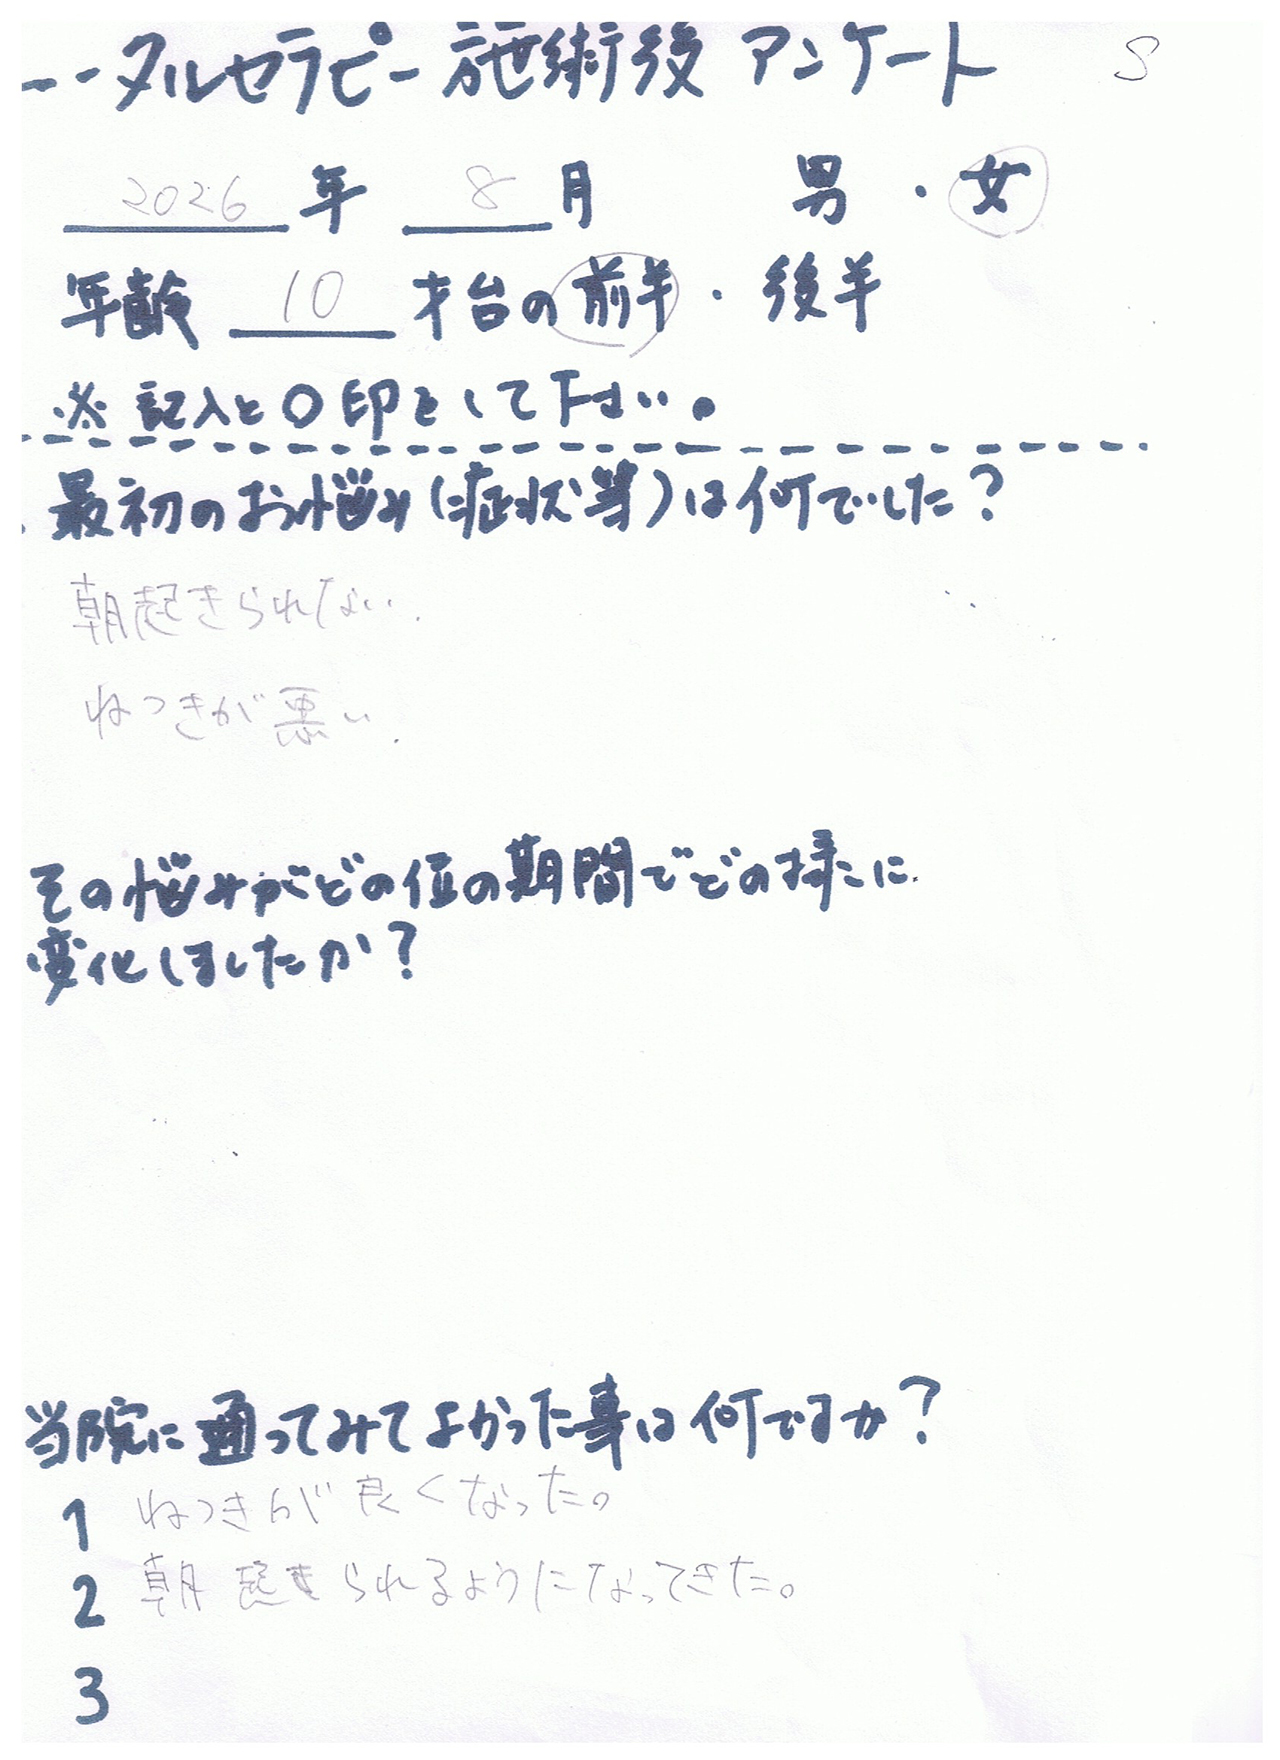 タルセラピー施術後 アンケート S
2026年 8月 男・女
年齢 10 才台の前半・後半
※ 記入と〇印をして下さい。
最初のお悩み(症状等)は何でした?
朝起きられない.
ねつきが悪い.
その悩みがどの位の期間でどの様に
変化しましたか?
当院に通ってみてよかった事は何ですか?
1 ねつきが良くなった。
2 朝起きられるようになってきた。
3